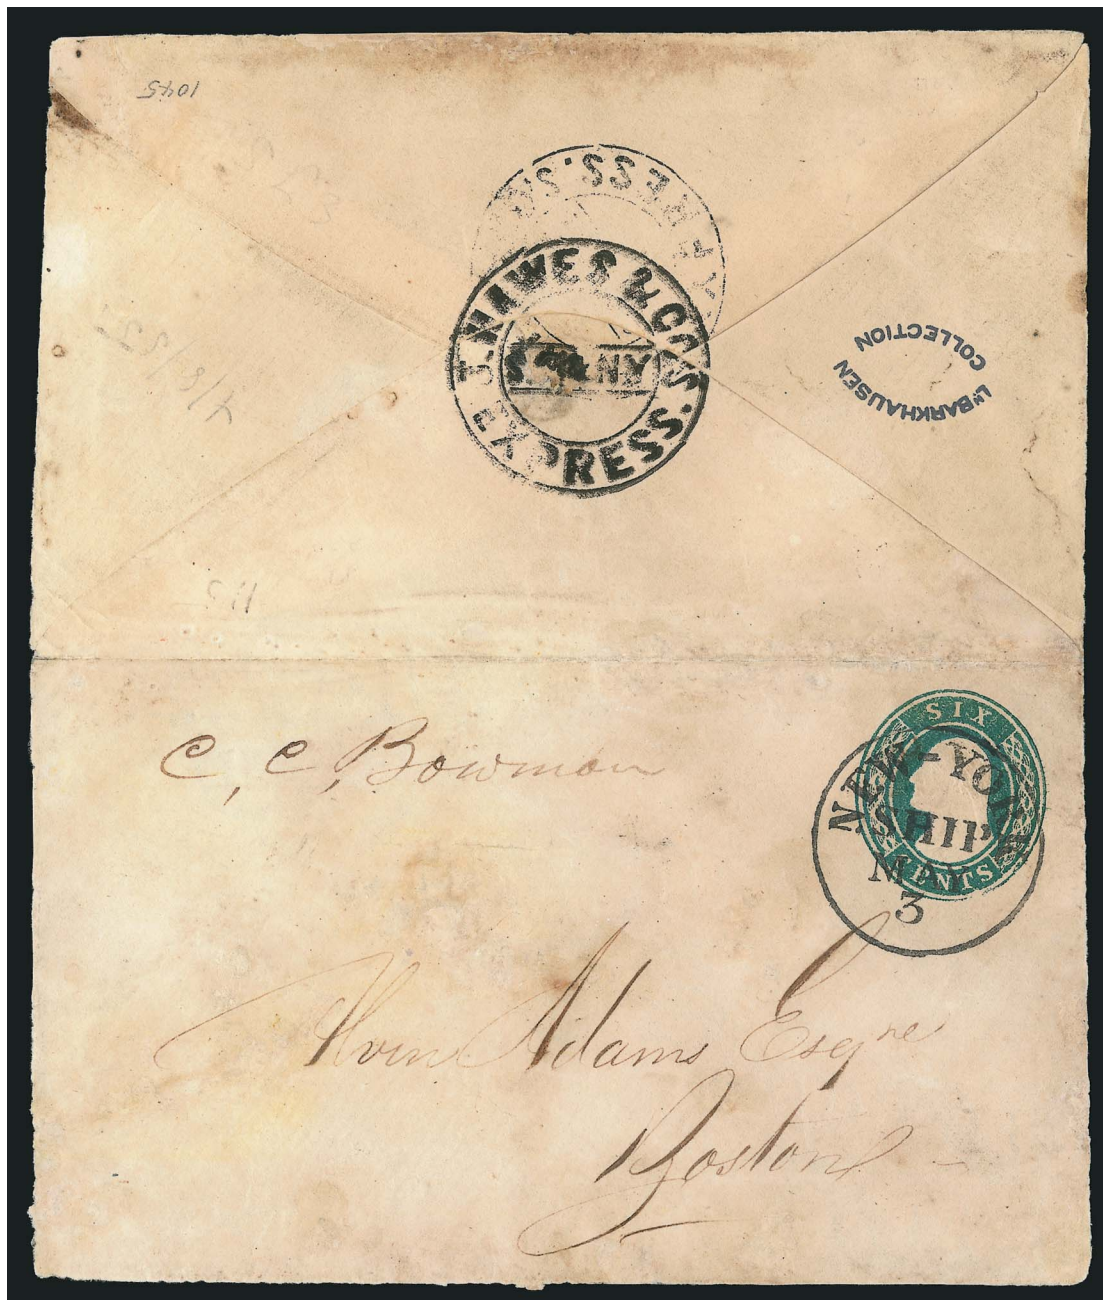 1045
RESS. SA
J. HAWES & CO'S.
EXPRESS.
NY
L'N BARKHAUSEN
COLLECTION
115
C, C, Bowman
SIX
CENTS
NEW-YORK
SHIP
MAY
3
Alvin Adams Esqre
Boston